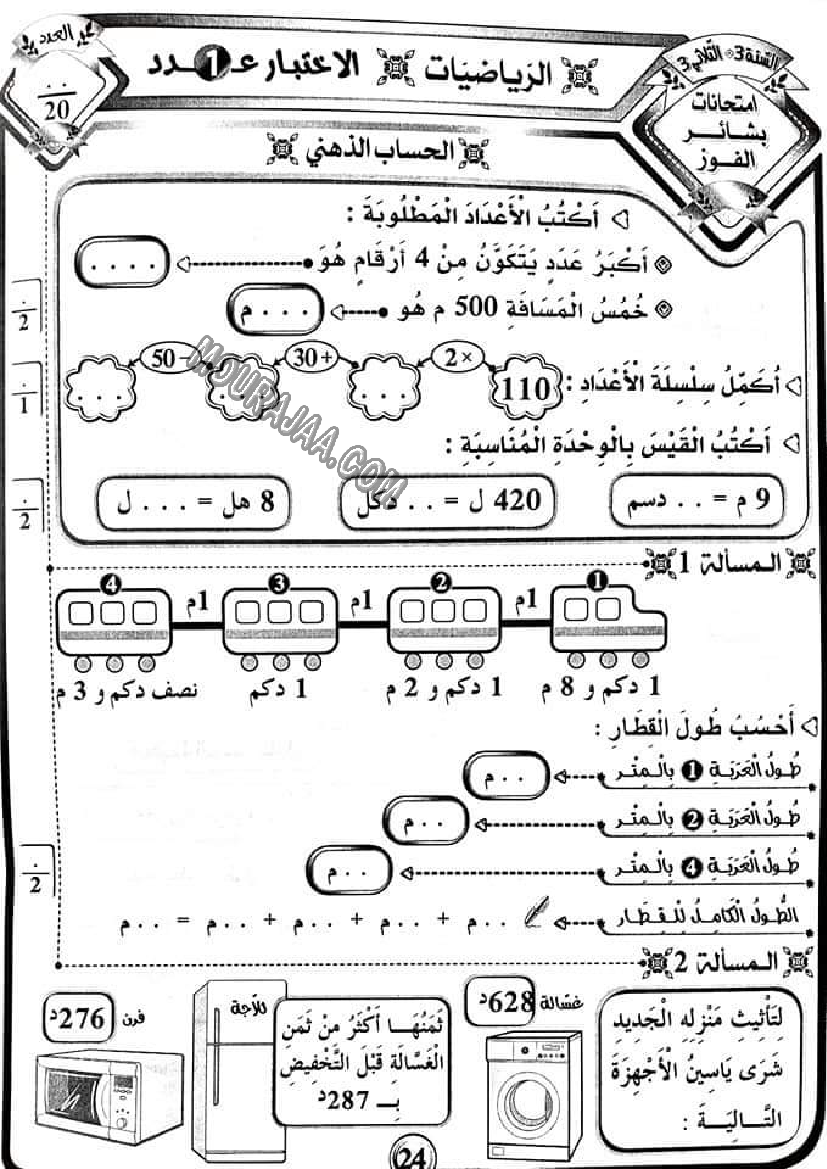 السّنة 3 - الثّلاثي 3
امتحانات
بشائر
الفوز
الرّياضيّات
الاختبار عـ1ـدد
العدد
. .
20
الحساب الذهني
أَكْتُبُ الْأَعْدَادَ الْمَطْلُوبَةَ :
أَكْبَرُ عَدَدٍ يَتَكَوَّنُ مِنْ 4 أَرْقَامٍ هُوَ . . . .
خُمُسُ الْمَسَافَةِ 500 م هُو . . . م
.
2
أُكَمِّلُ سِلْسِلَةَ الْأَعْدَادِ : 110 ×2 . . . +30 . . . −50 . . .
.
1
أَكْتُبُ الْقَيْسَ بِالْوِحْدَةِ الْمُنَاسِبَةِ :
9 م = . . دسم
420 ل = . . دكل
8 هل = . . . ل
.
2
MOURAJAA.COM
المسألة 1
1 2 3 4
1م 1م 1م
1 دكم و 8 م
1 دكم و 2 م
1 دكم
نصف دكم و 3 م
أَحْسُبُ طُولَ الْقِطَارِ :
طُولُ الْعَرَبَةِ 1 بِالْمِتْرِ . . م
طُولُ الْعَرَبَةِ 2 بِالْمِتْرِ . . م
طُولُ الْعَرَبَةِ 4 بِالْمِتْرِ . . م
.
2
الطُّولُ الْكَامِلُ لِلْقِطَارِ . . م + . . م + . . م + . . م = . . م
المسألة 2
لِتَأْثِيثِ مَنْزِلِهِ الْجَدِيدِ
شَرَى يَاسِينُ الْأَجْهِزَةَ
التَّالِيَةَ :
غسّالة 628د
ثلاّجة
ثَمَنُهَا أَكْثَرُ مِنْ ثَمَنِ
الْغَسَّالَةِ قَبْلَ التَّخْفِيضِ
بِـ 287د
فرن 276د
24